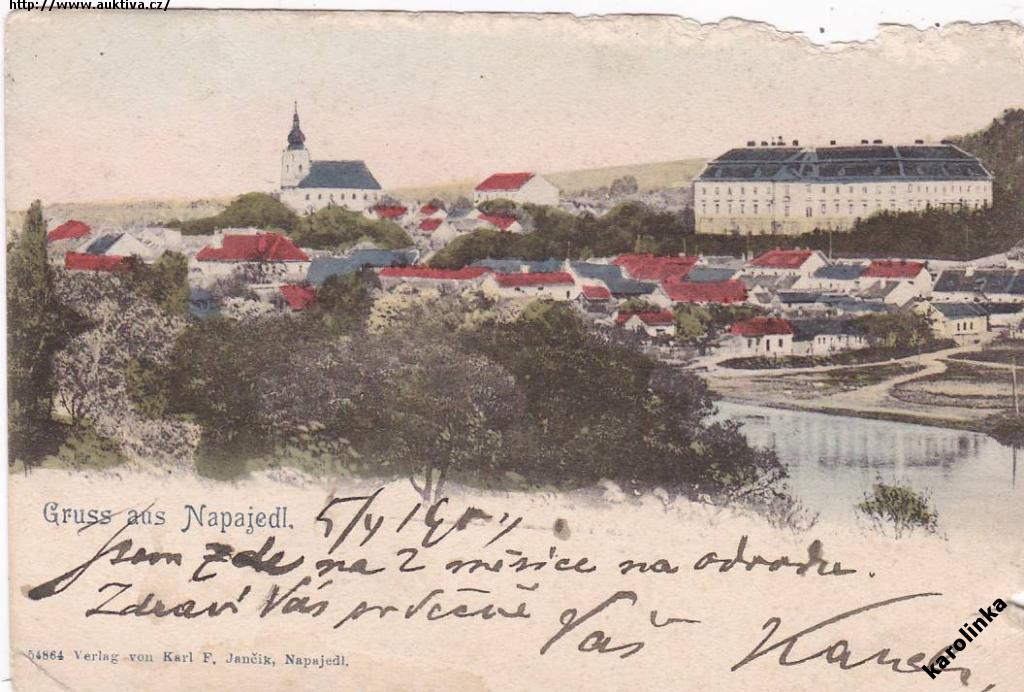 http://www.auktiva.cz/
Gruss aus Napajedl.
5/4 1904
Jsem zde na 2 měsíce na odvodu.
Zdraví Vás srdečně Váš
54864 Verlag von Karl F. Jančik, Napajedl.
karolinka